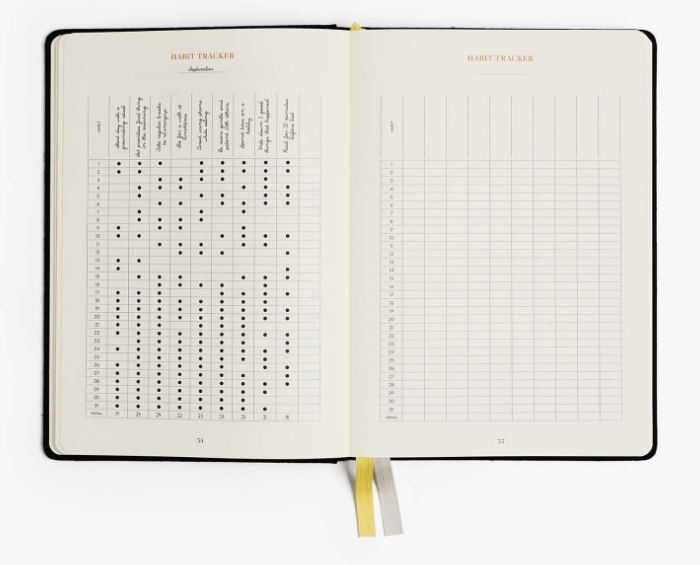 HABIT TRACKER
September
HABIT
Start day with a
grounding ritual
Set priorities first thing
in the morning
Take regular breaks
to
Go for a walk at
lunchtime
Avoid using phone
while eating
Be more gentle and
patient with others
Spend time on a
hobby
Write down 3 good
things that happened
Read for 30 minutes
before bed
1
2
3
4
5
6
7
8
9
10
11
12
13
14
15
16
17
18
19
20
21
22
23
24
25
26
27
28
29
30
31
TOTAL
54
HABIT TRACKER
HABIT
1
2
3
4
5
6
7
8
9
10
11
12
13
14
15
16
17
18
19
20
21
22
23
24
25
26
27
28
29
30
31
TOTAL
55